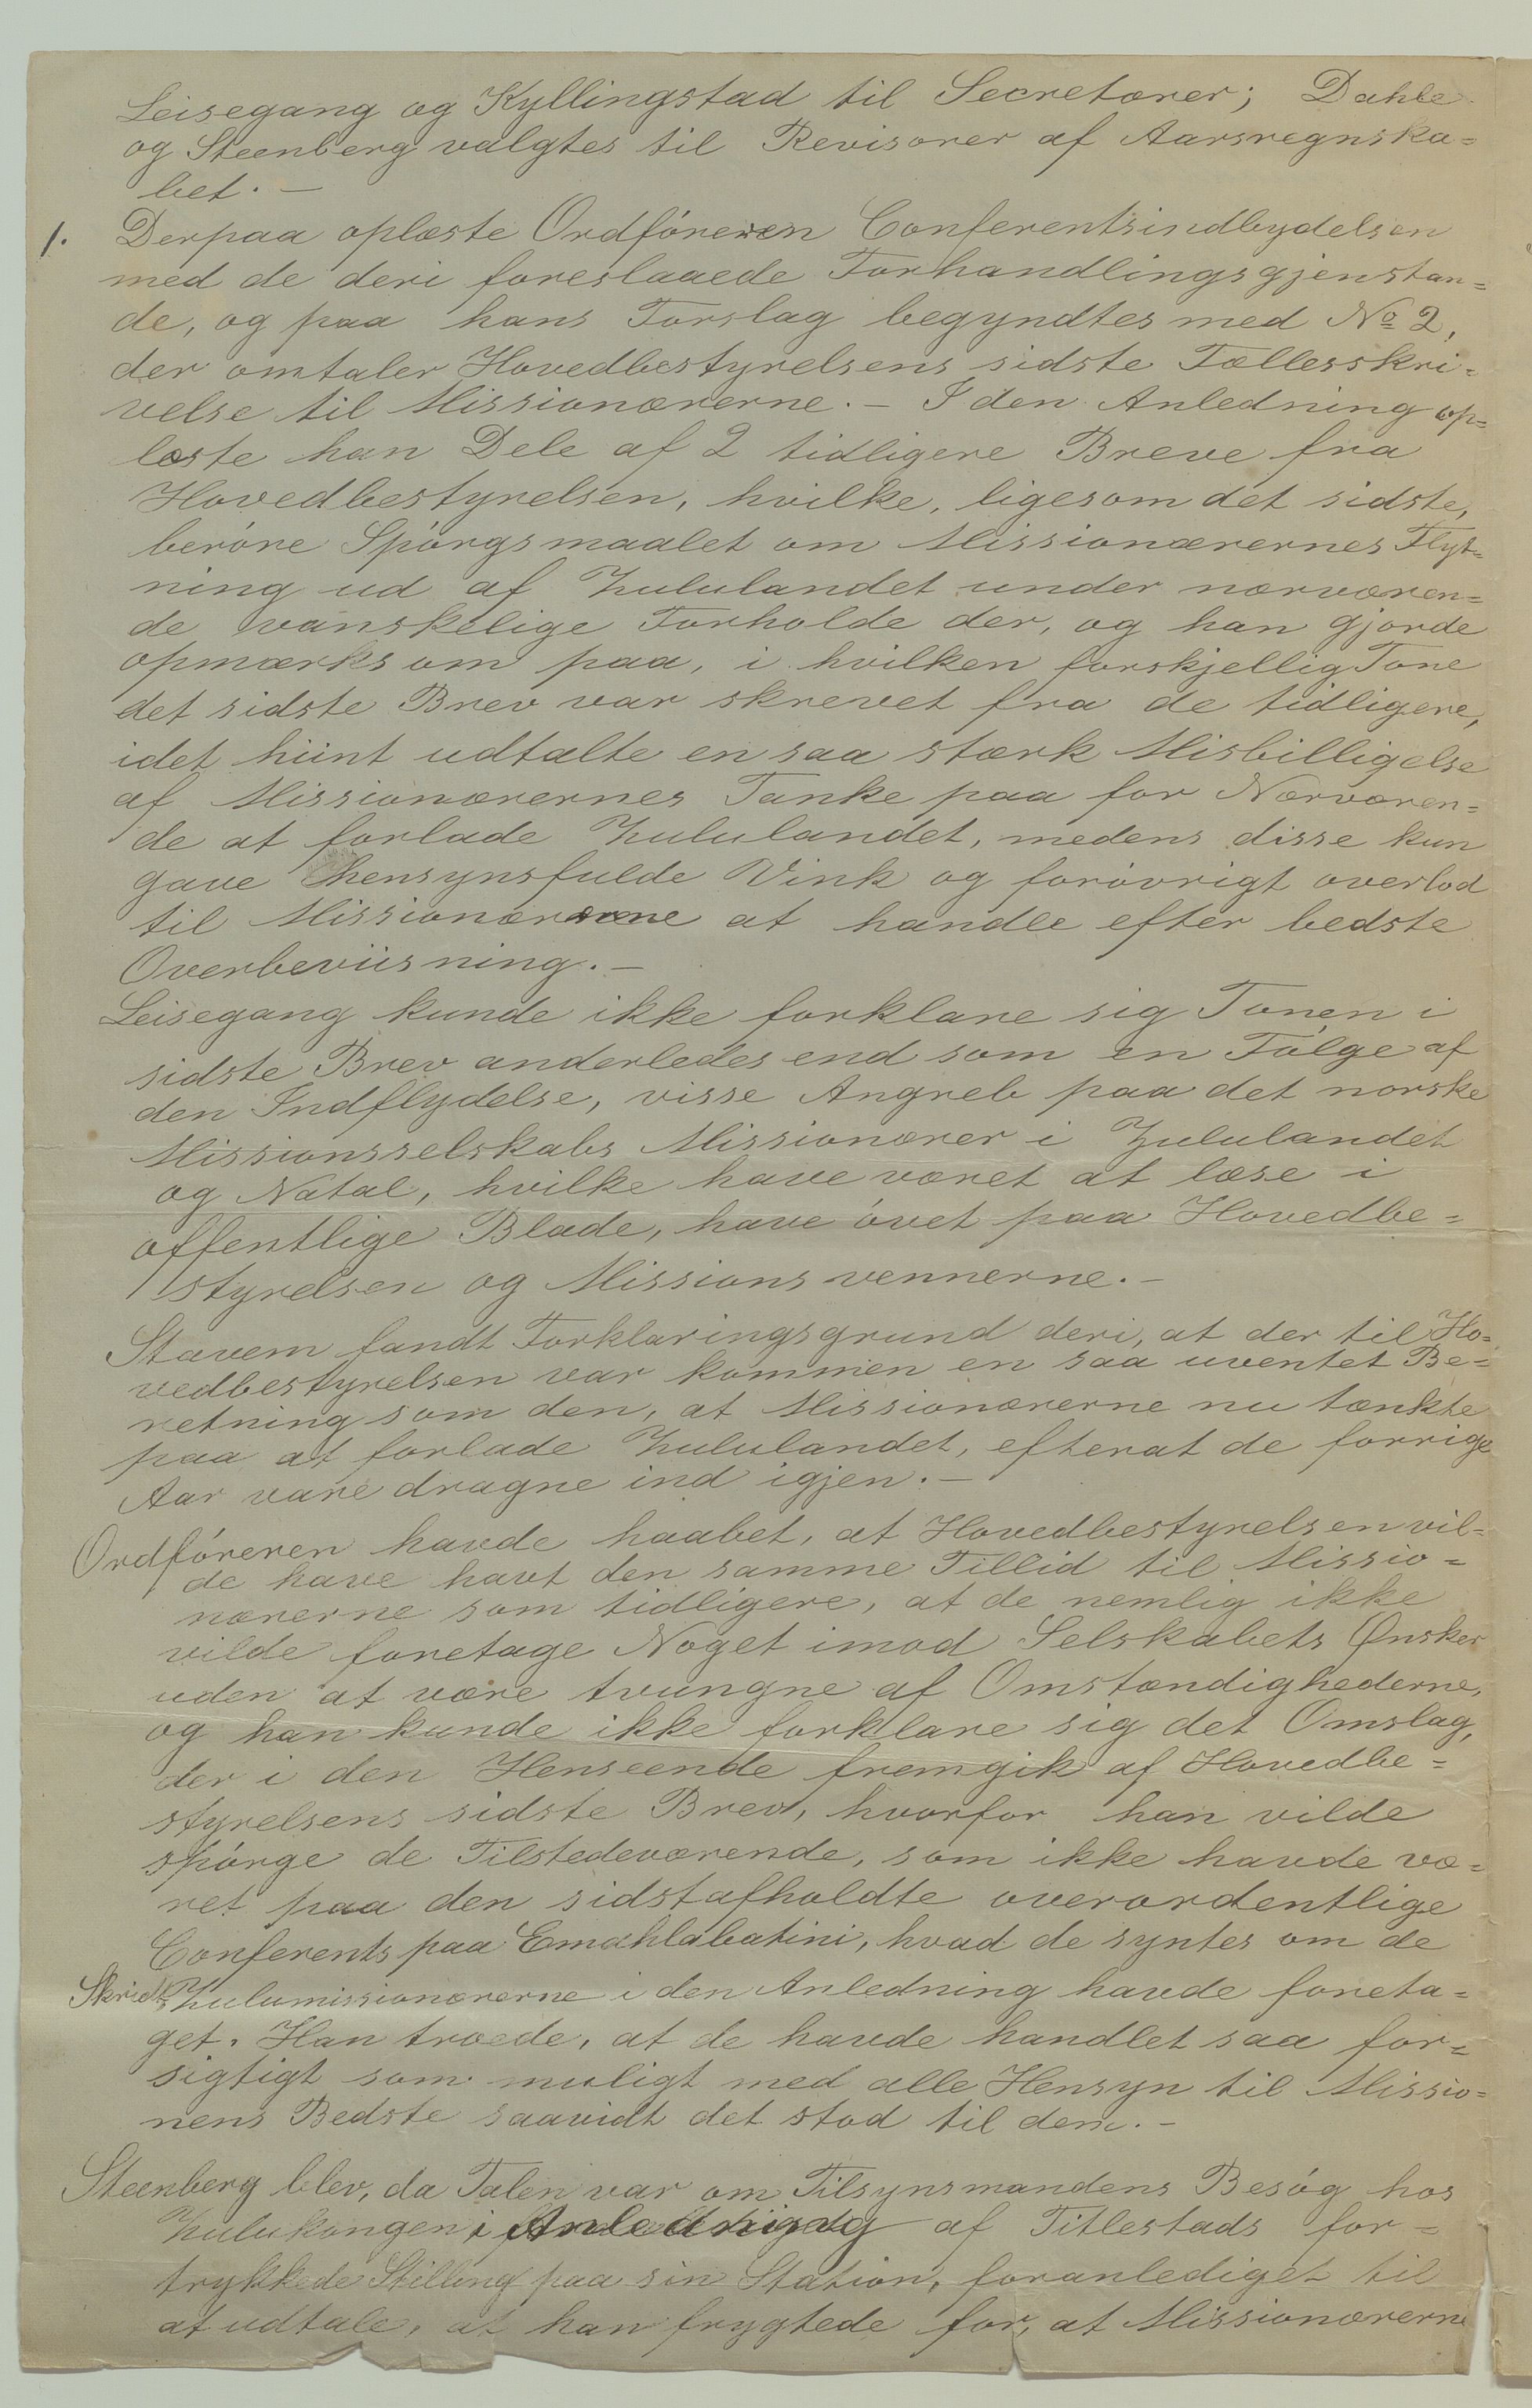 Leisegang og Kyllingstad til Secretærer; Dahle
og Steenberg valgtes til Revisorer af Aarsregnska=
bet. —
1. Derpaa oplæste Ordføreren Conferentsindbydelsen
med de deri foreslaaede Forhandlingsgjenstan=
de, og paa hans Forslag begyndtes med No 2,
der omtaler Hovedbestyrelsens sidste Fællesskri=
velse til Missionærerne. — I den Anledning op=
læste han Dele af 2 tidligere Breve fra
Hovedbestyrelsen, hvilke, ligesom det sidste,
berøre Spørgsmaalet om Missionærernes Flyt=
ning ud af Zululandet under nærværen=
de vanskelige Forholde der, og han gjorde
opmærksom paa, i hvilken forskjellig Tone
det sidste Brev var skrevet fra de tidligere,
idet hiint udtalte en saa stærk Misbilligelse
af Missionærernes Tanke paa for Nærværen=
de at forlade Zululandet, medens disse kun
gave hensynsfulde Vink og forøvrigt overlod
til Missionærerne at handle efter bedste
Overbeviisning. —
Leisegang kunde ikke forklare sig Tonen i
sidste Brev anderledes end som en Følge af
den Indflydelse, visse Angreb paa det norske
Missionsselskabs Missionærer i Zululandet
og Natal, hvilke have været at læse i
offentlige Blade, have øvet paa Hovedbe=
styrelsen og Missionsvennerne. —
Stavem fandt Forklaringsgrund deri, at der til Ho=
vedbestyrelsen var kommen en saa uventet Be=
retning som den, at Missionærerne nu tænkte
paa at forlade Zululandet, efterat de forrige
Aar vare dragne ind igjen. —
Ordføreren havde haabet, at Hovedbestyrelsen vil=
de have havt den samme Tillid til Missio=
nærerne som tidligere, at de nemlig ikke
vilde foretage Noget imod Selskabets Ønsker
uden at være tvungne af Omstændighederne,
og han kunde ikke forklare sig det Omslag,
der i den Henseende fremgik af Hovedbe=
styrelsens sidste Brev, hvorfor han vilde
spørge de Tilstedeværende, som ikke havde væ=
ret paa den sidstafholdte overordentlige
Conferents paa Emahlabatini, hvad de syntes om de
Skridt, Zulumissionærerne i den Anledning havde foreta=
get. Han troede, at de havde handlet saa for=
sigtigt som muligt med alle Hensyn til Missio=
nens Bedste saavidt det stod til dem. —
Steenberg blev, da Talen var om Tilsynsmandens Besøg hos
Zulukongen i Anledning af Titlestads for=
trykkede Stilling paa sin Station, foranlediget til
at udtale, at han frygtede for, at Missionærerne